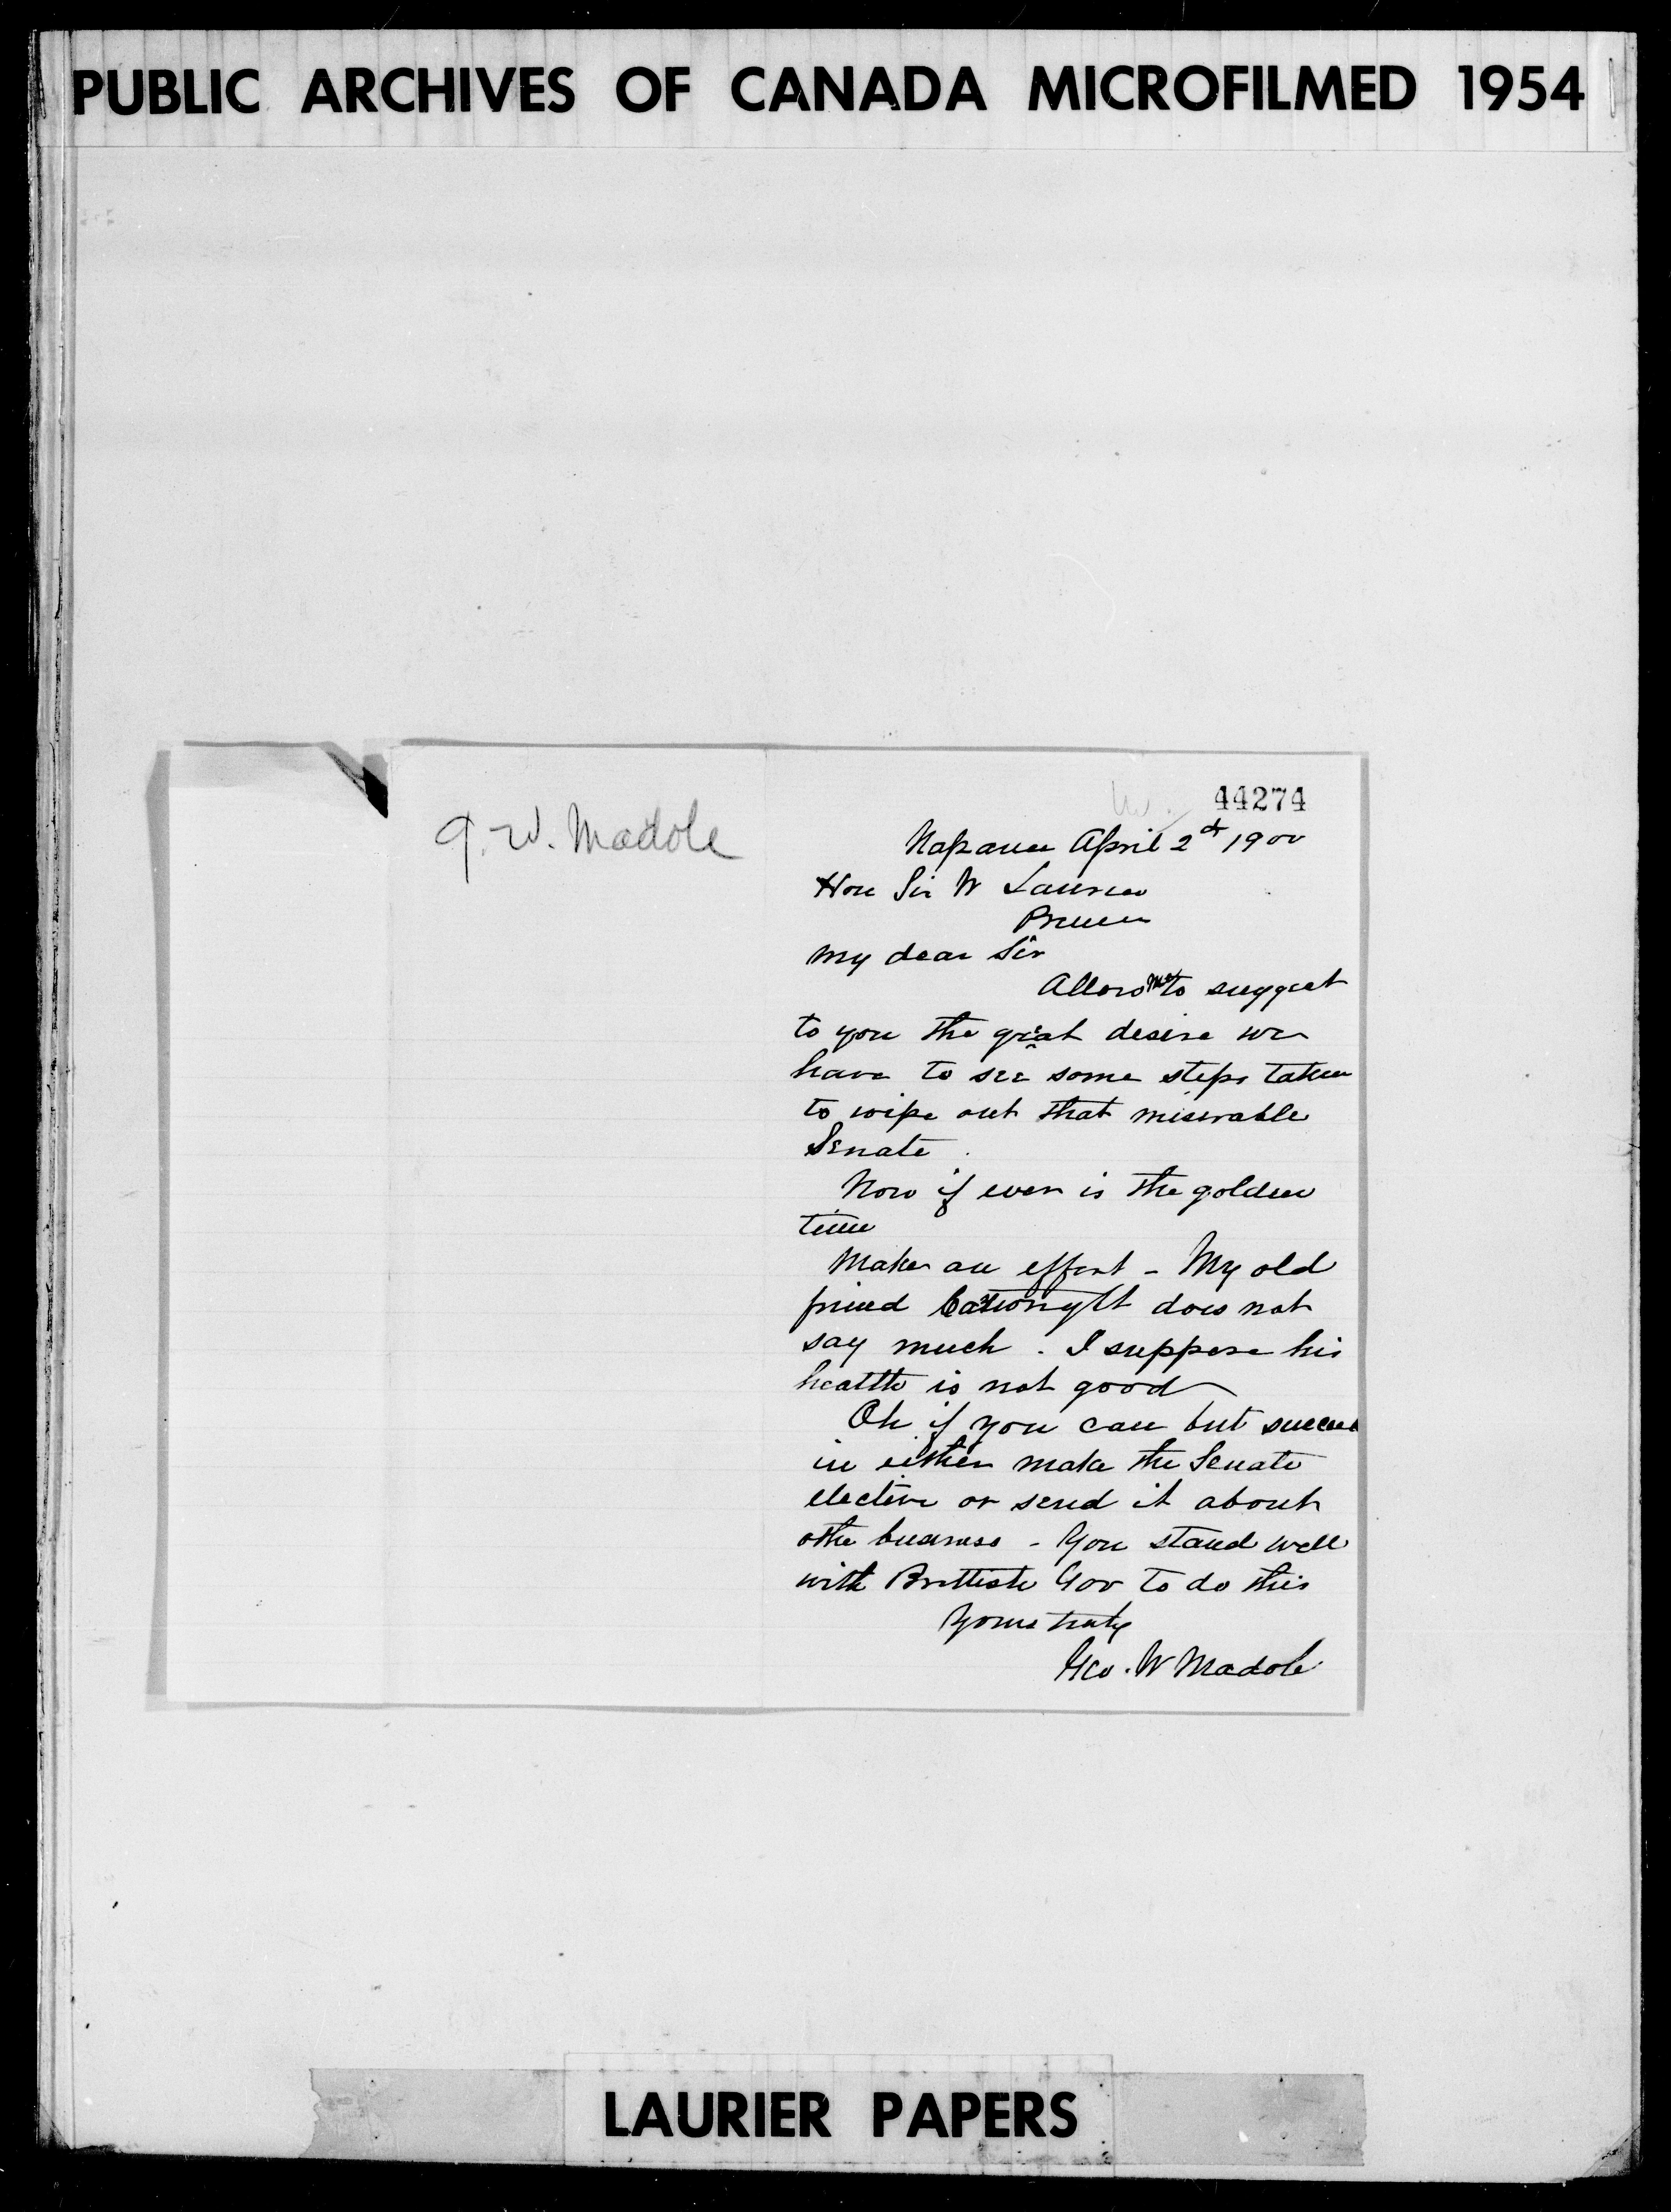 PUBLIC ARCHIVES OF CANADA MICROFILMED 1954
G. W. Madole
44274
Napanee April 2d 1900
Hon Sir W Laurier
Premier
My dear Sir
Allow me to suggest
to you the great desire we
have to see some steps taken
to wipe out that miserable
Senate.
Now if ever is the golden
time
Make an effort - My old
friend Cartwright does not
say much. I suppose his
health is not good
Oh if you can but succeed
in either make the Senate
elective or send it about
othe business - You stand well
with Brittish Gov to do this
Yours truly
Geo. W Madole
LAURIER PAPERS